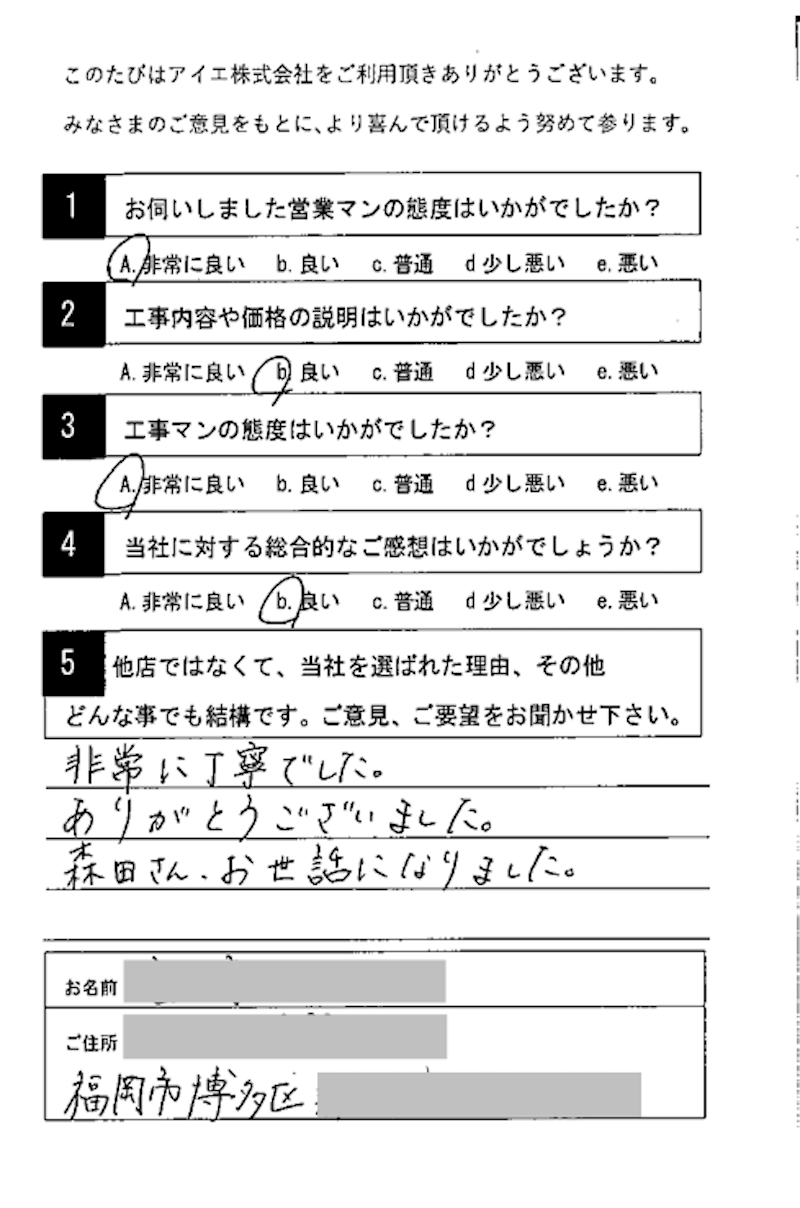 このたびはアイエ株式会社をご利用頂きありがとうございます。
みなさまのご意見をもとに、より喜んで頂けるよう努めて参ります。
1 お伺いしました営業マンの態度はいかがでしたか？
A. 非常に良い b. 良い c. 普通 d 少し悪い e. 悪い
2 工事内容や価格の説明はいかがでしたか？
A. 非常に良い b. 良い c. 普通 d 少し悪い e. 悪い
3 工事マンの態度はいかがでしたか？
A. 非常に良い b. 良い c. 普通 d 少し悪い e. 悪い
4 当社に対する総合的なご感想はいかがでしょうか？
A. 非常に良い b. 良い c. 普通 d 少し悪い e. 悪い
5 他店ではなくて、当社を選ばれた理由、その他
どんな事でも結構です。ご意見、ご要望をお聞かせ下さい。
非常に丁寧でした。
ありがとうございました。
森田さん、お世話になりました。
お名前
ご住所
福岡市博多区